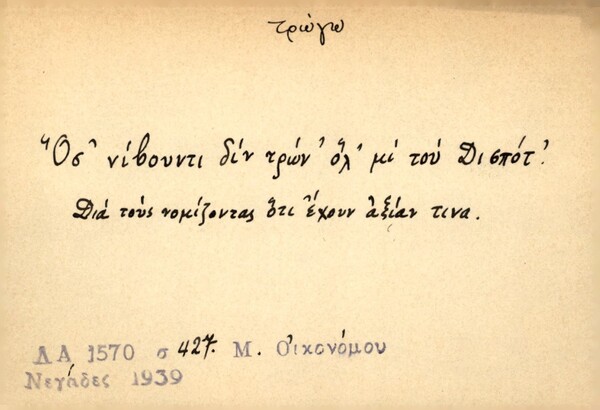 τρώγω
Ὅσ' νίβουντι δὶν τρών' ὅλ' μὶ τοὺ Δισπότ'.
Διὰ τοὺς νομίζοντας ὅτι ἔχουν ἀξίαν τινα.
ΛΑ 1570 σ 427. Μ. Οἰκονόμου
Νεγάδες 1939